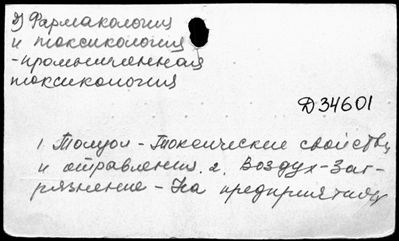 д) Фармакология
и токсикология
-промышленная
токсикология
D34601
1. Толуол - Токсические свойства
и отравления. 2. Воздух - Заг-
рязнение - На предприятиях